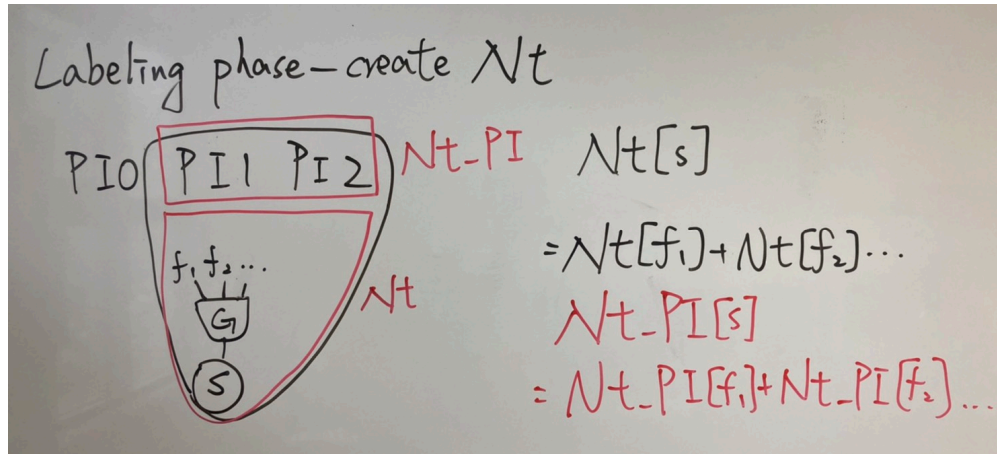 Labeling phase-create Nt
PI0 PI1 PI2 Nt_PI
f₁ f₂...
G
S
Nt
Nt[s]
=Nt[f₁]+Nt[f₂]...
Nt_PI[s]
=Nt_PI[f₁]+Nt_PI[f₂]...